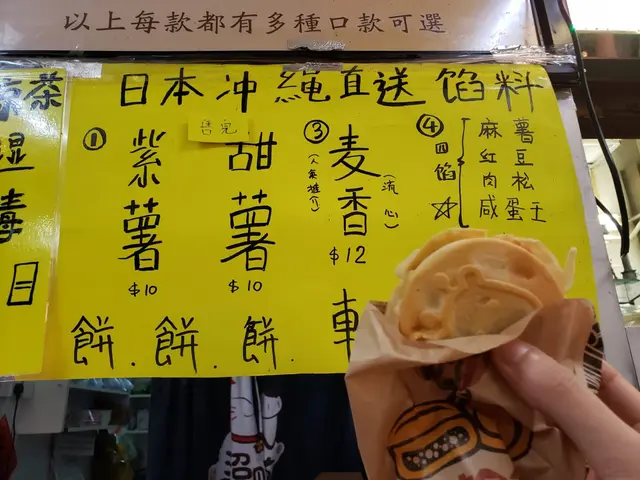 以上每款都有多種口款可選
日本沖繩直送餡料
茶
濕
毒
①
紫薯
$10
餅.
售完
甜薯
$10
餅.
③
(人氣推介)
麥香
(流心)
$12
餅.
④
四餡
☆
麻薯
紅豆
肉松
咸蛋王